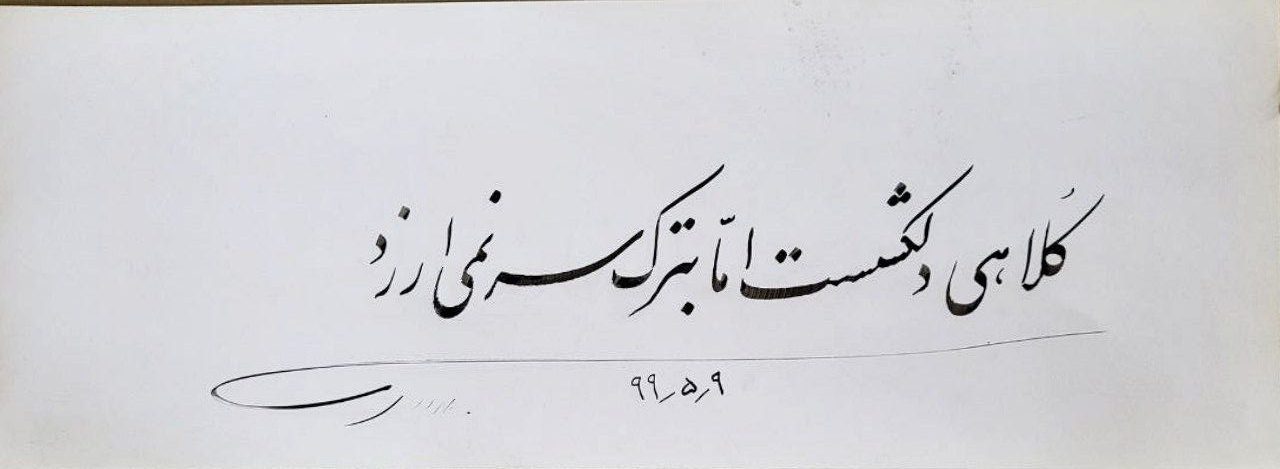 کُلاهی دلکشست امّا بترک سر نمی ارزد
۹۹٫۵٫۹